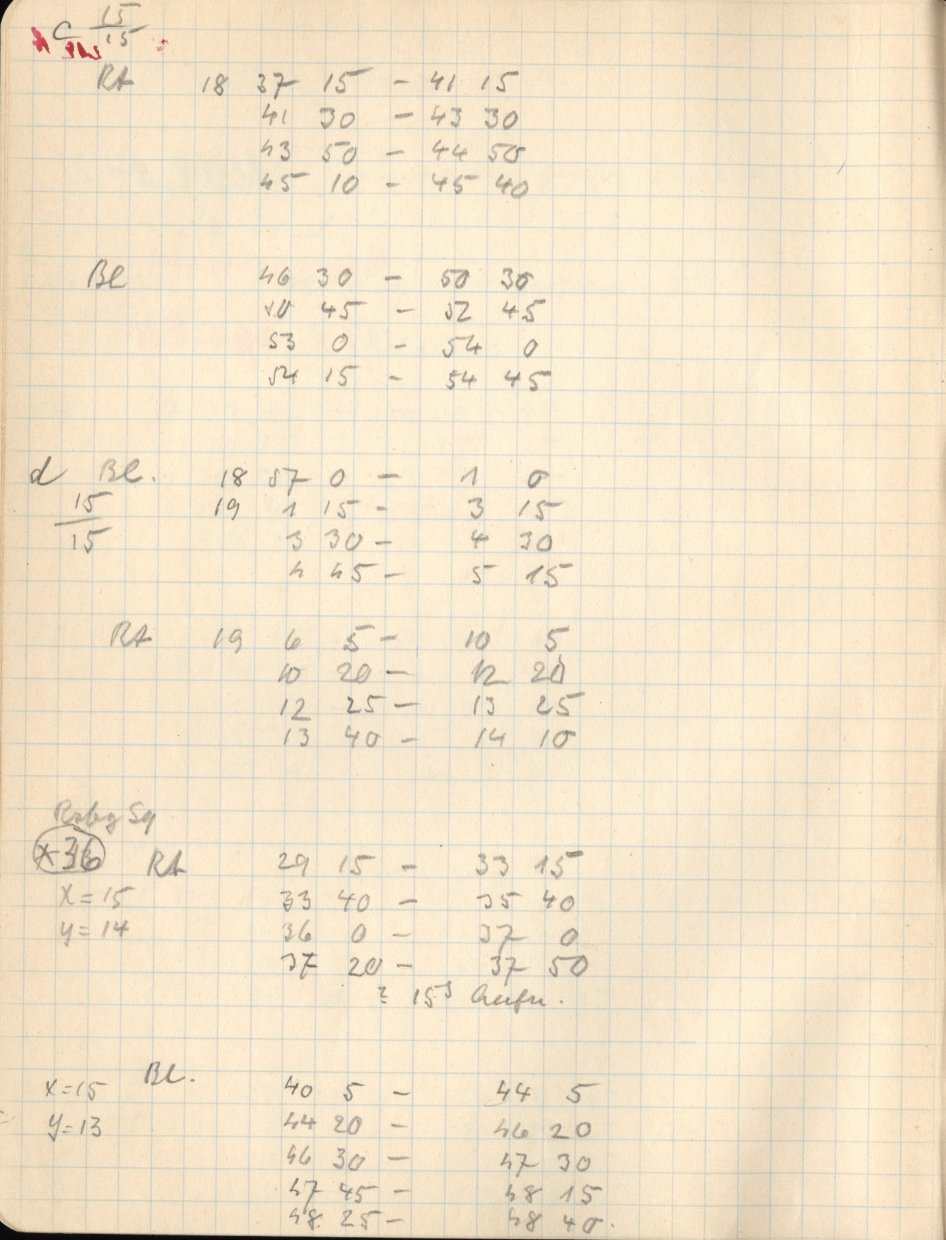 c 15/15
Rt 18 37 15 - 41 15
41 30 - 43 30
43 50 - 44 50
45 10 - 45 40
Bl 46 30 - 50 30
50 45 - 52 45
53 0 - 54 0
54 15 - 54 45
d Bl. 18 57 0 - 1 0
15/15 19 1 15 - 3 15
3 30 - 4 30
4 45 - 5 15
Rt 19 6 5 - 10 5
10 20 - 12 20
12 25 - 13 25
13 40 - 14 10
x-36 Rt 29 15 - 33 15
x=15 33 40 - 35 40
y=14 36 0 - 37 0
37 20 - 37 50
? 15s Aufn.
Bl.
x=15 40 5 - 44 5
y=13 44 20 - 46 20
46 30 - 47 30
47 45 - 48 15
48 25 - 48 40.